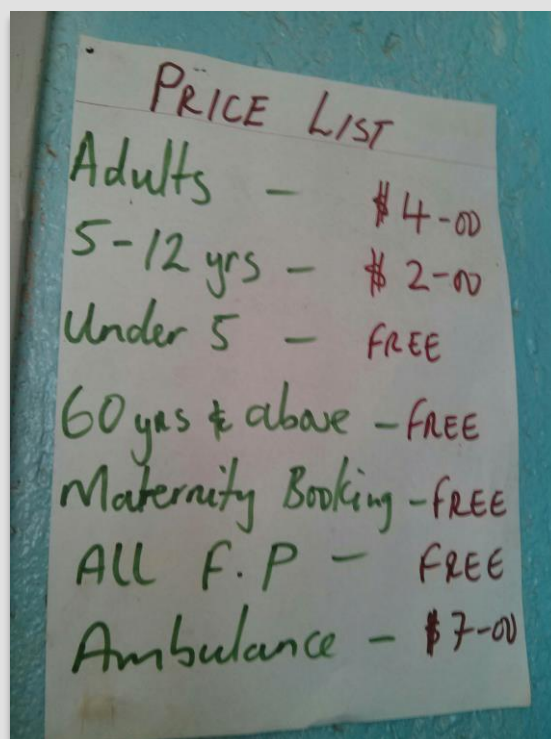 PRICE LIST
Adults - $4-00
5-12 yrs - $2-00
Under 5 - FREE
60 yrs & above - FREE
Maternity Booking - FREE
ALL F.P - FREE
Ambulance - $7-00